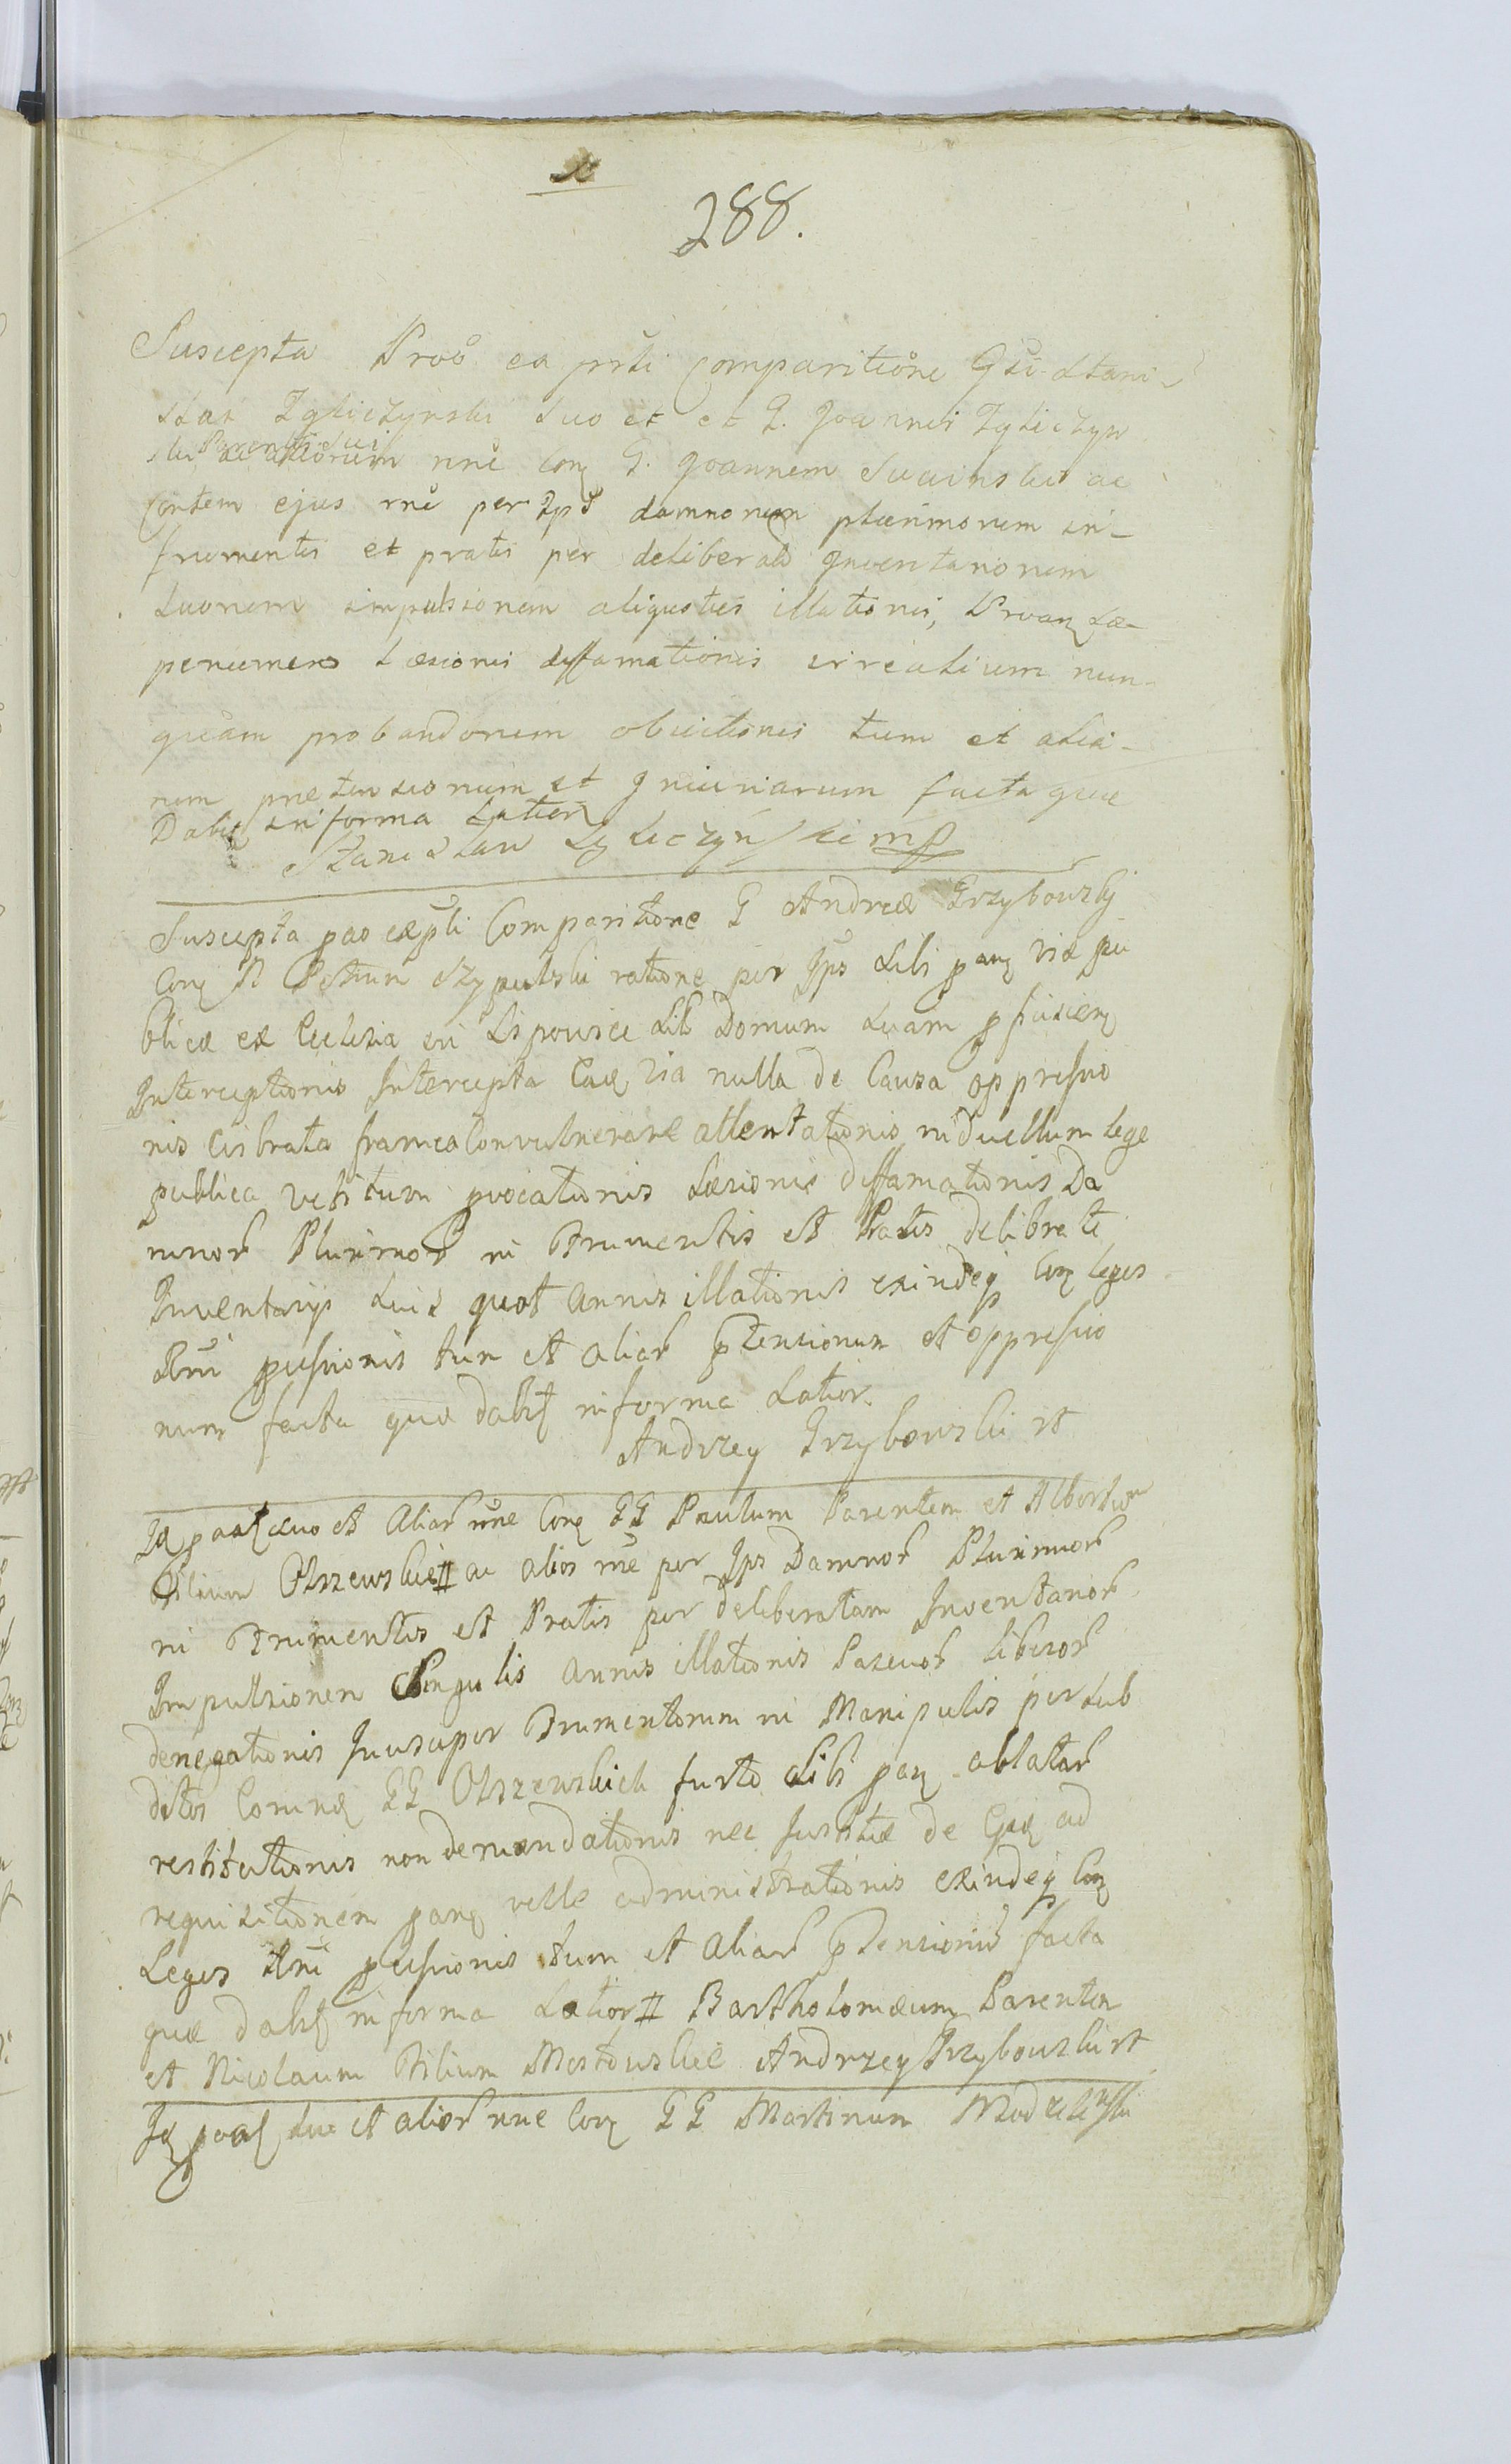 288.
Suscepta Prõõ ea prñti Comparitione Gsi Stani-
slai Zgliczynski suo et et G. Joannis Zgliczyn
ski Parentis sui ac aliorum nñe Con G. Joannem Sucinski ac
Contem ejus rñe per Ips damnorum plurimorum in-
frumentis et pratis per deliberatã Inventariorum
suorum impulsionem aliquoties illationis, Proan sæ-
penumero Læsionis diffamationis irrealium nun-
quam probandorum obiectionis tum et alia-
rum prætensionum et Iniuriarum facta quæ
Dabit in forma Latior
Stanislaw Zgliczynski mp
Suscepta pao expti Comparitione G Andreæ Grzybowskj
Con N Petrum Szypulski ratione per Ips Sibi pang viæ pu
blicæ ex Eclesia in Lipowiec Sib Domum suam pficien
Interceptionis Intercepta Eaq via nulla de Causa oppressio
nis Librata framea Convulnerare attentationis in duellum lege
publica vetitum pvocationis Læsionis diffamationis Da
mnor Plurimor in Frumentis et Pratis delibrate
Inventarijs suis quot annis illationis exindeq Con leges
Rni pussionis tum et aliar ptensionum et oppressio
num facta quæ dabit in forma Latior.
Andrzey Grzybowski rt
Id paaq suo et Aliar nñe Con GG Paulum Parentem et Albertum
Filium Olszewskie # ac alios rñe per Ips Damnor Plurimor
in Frumentis et Pratis per deliberatam Inventarior
Impulsionem Singulis annis illationis Pascuor liberor
denegationis Insuper Frumentorum in Manipulis per sub
ditos Cornne GG Olszewskich furto Sibi pan ablatar
restitutionis non demandationis nec Justitiæ de Eisq ad
requisitionem pang velle administrationis exindeq Con
Leges Rni pussionis tum et aliar ptensionu facta
quæ dabit in forma Latior # Bartholomæum Parentem
et Nicolaum Filium Mostowskie Andrzey Grzybowski rt
Id paaq suo et alior nñe Con GG Martinum Modzelewski